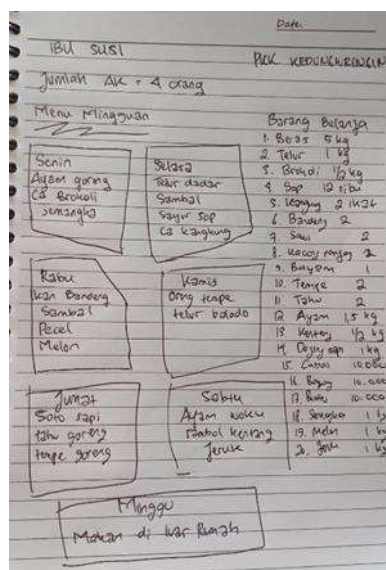 Date:
IBU SUSI
PKK KEDUNGWRINGIN
Jumlah AK = 4 orang
Menu Mingguan
Senin
Ayam goreng
Ca Brokoli
semangka
Selasa
Telur dadar
Sambal
Sayur Sop
Ca kangkung
Rabu
Ikan Bandeng
Sambal
Pecel
Melon
Kamis
Oreg tempe
telur balado
Jumat
Soto sapi
tahu goreng
tempe goreng
Sabtu
Ayam woku
Sambal kentang
Jeruk
Minggu
Makan di luar Rumah
Barang Belanja
1. Beras 5 kg
2. Telur 1 kg
3. Brokoli 1/2 kg
4. Sop 12 ribu
5. Kangkung 2 ikat
6. Bandeng 2
7. Sawi 2
8. kacang panjang 2
9. Bayam 1
10. Tempe 2
11 Tahu 2
12 Ayam 1,5 kg
13 Kentang 1/2 kg
14. Daging sapi 1 kg
15. Cabai 10.000
16 10.000
17. 10.000
18. Semangka 1
19. Melon 1 kg
20. Jeruk 1 kg